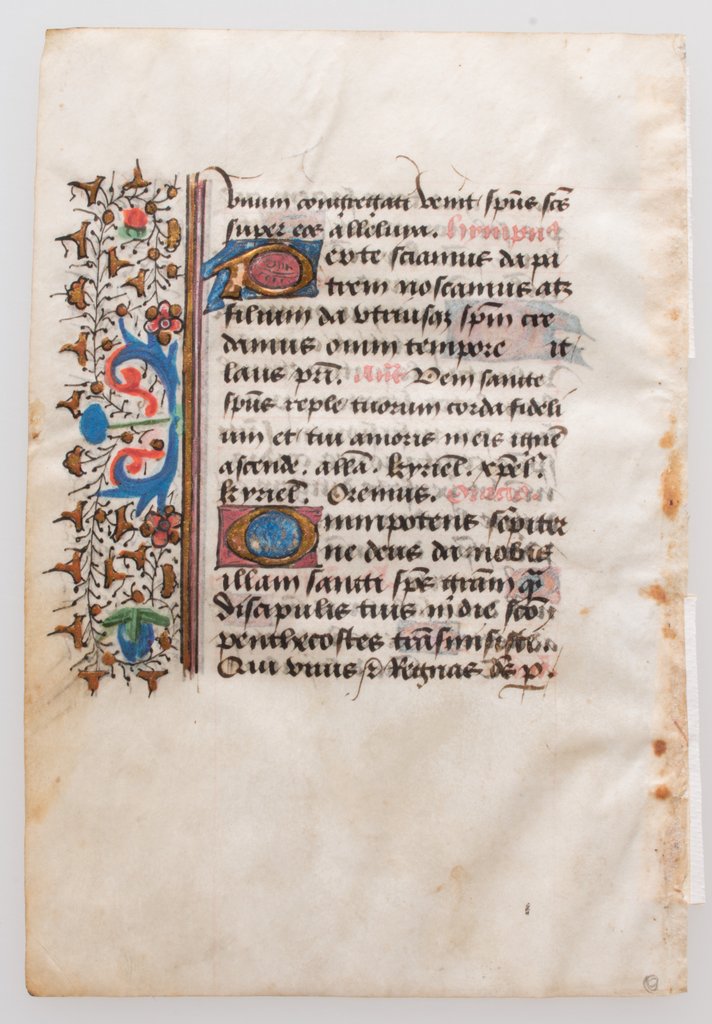 vnum congregati venit sp̄us sc̄s
super eos alleluia. himpnus
Per te sciamus da pa
trem noscamus atq
filium da vtriusq sp̄m cre
damus omni tempore it
laus pr̄i. Añ Veni sancte
sp̄us reple tuorum corda fideli
um et tui amoris in eis ignē
ascende. alla. kyriel. xp̄el.
kyriel. Oremus.
Omnipotens sēpiter
ne deus da nobis
illam sancti sp̄s grām
discipulis tuis in die
penthecostes trāsmisisti
Qui viuis Regnas